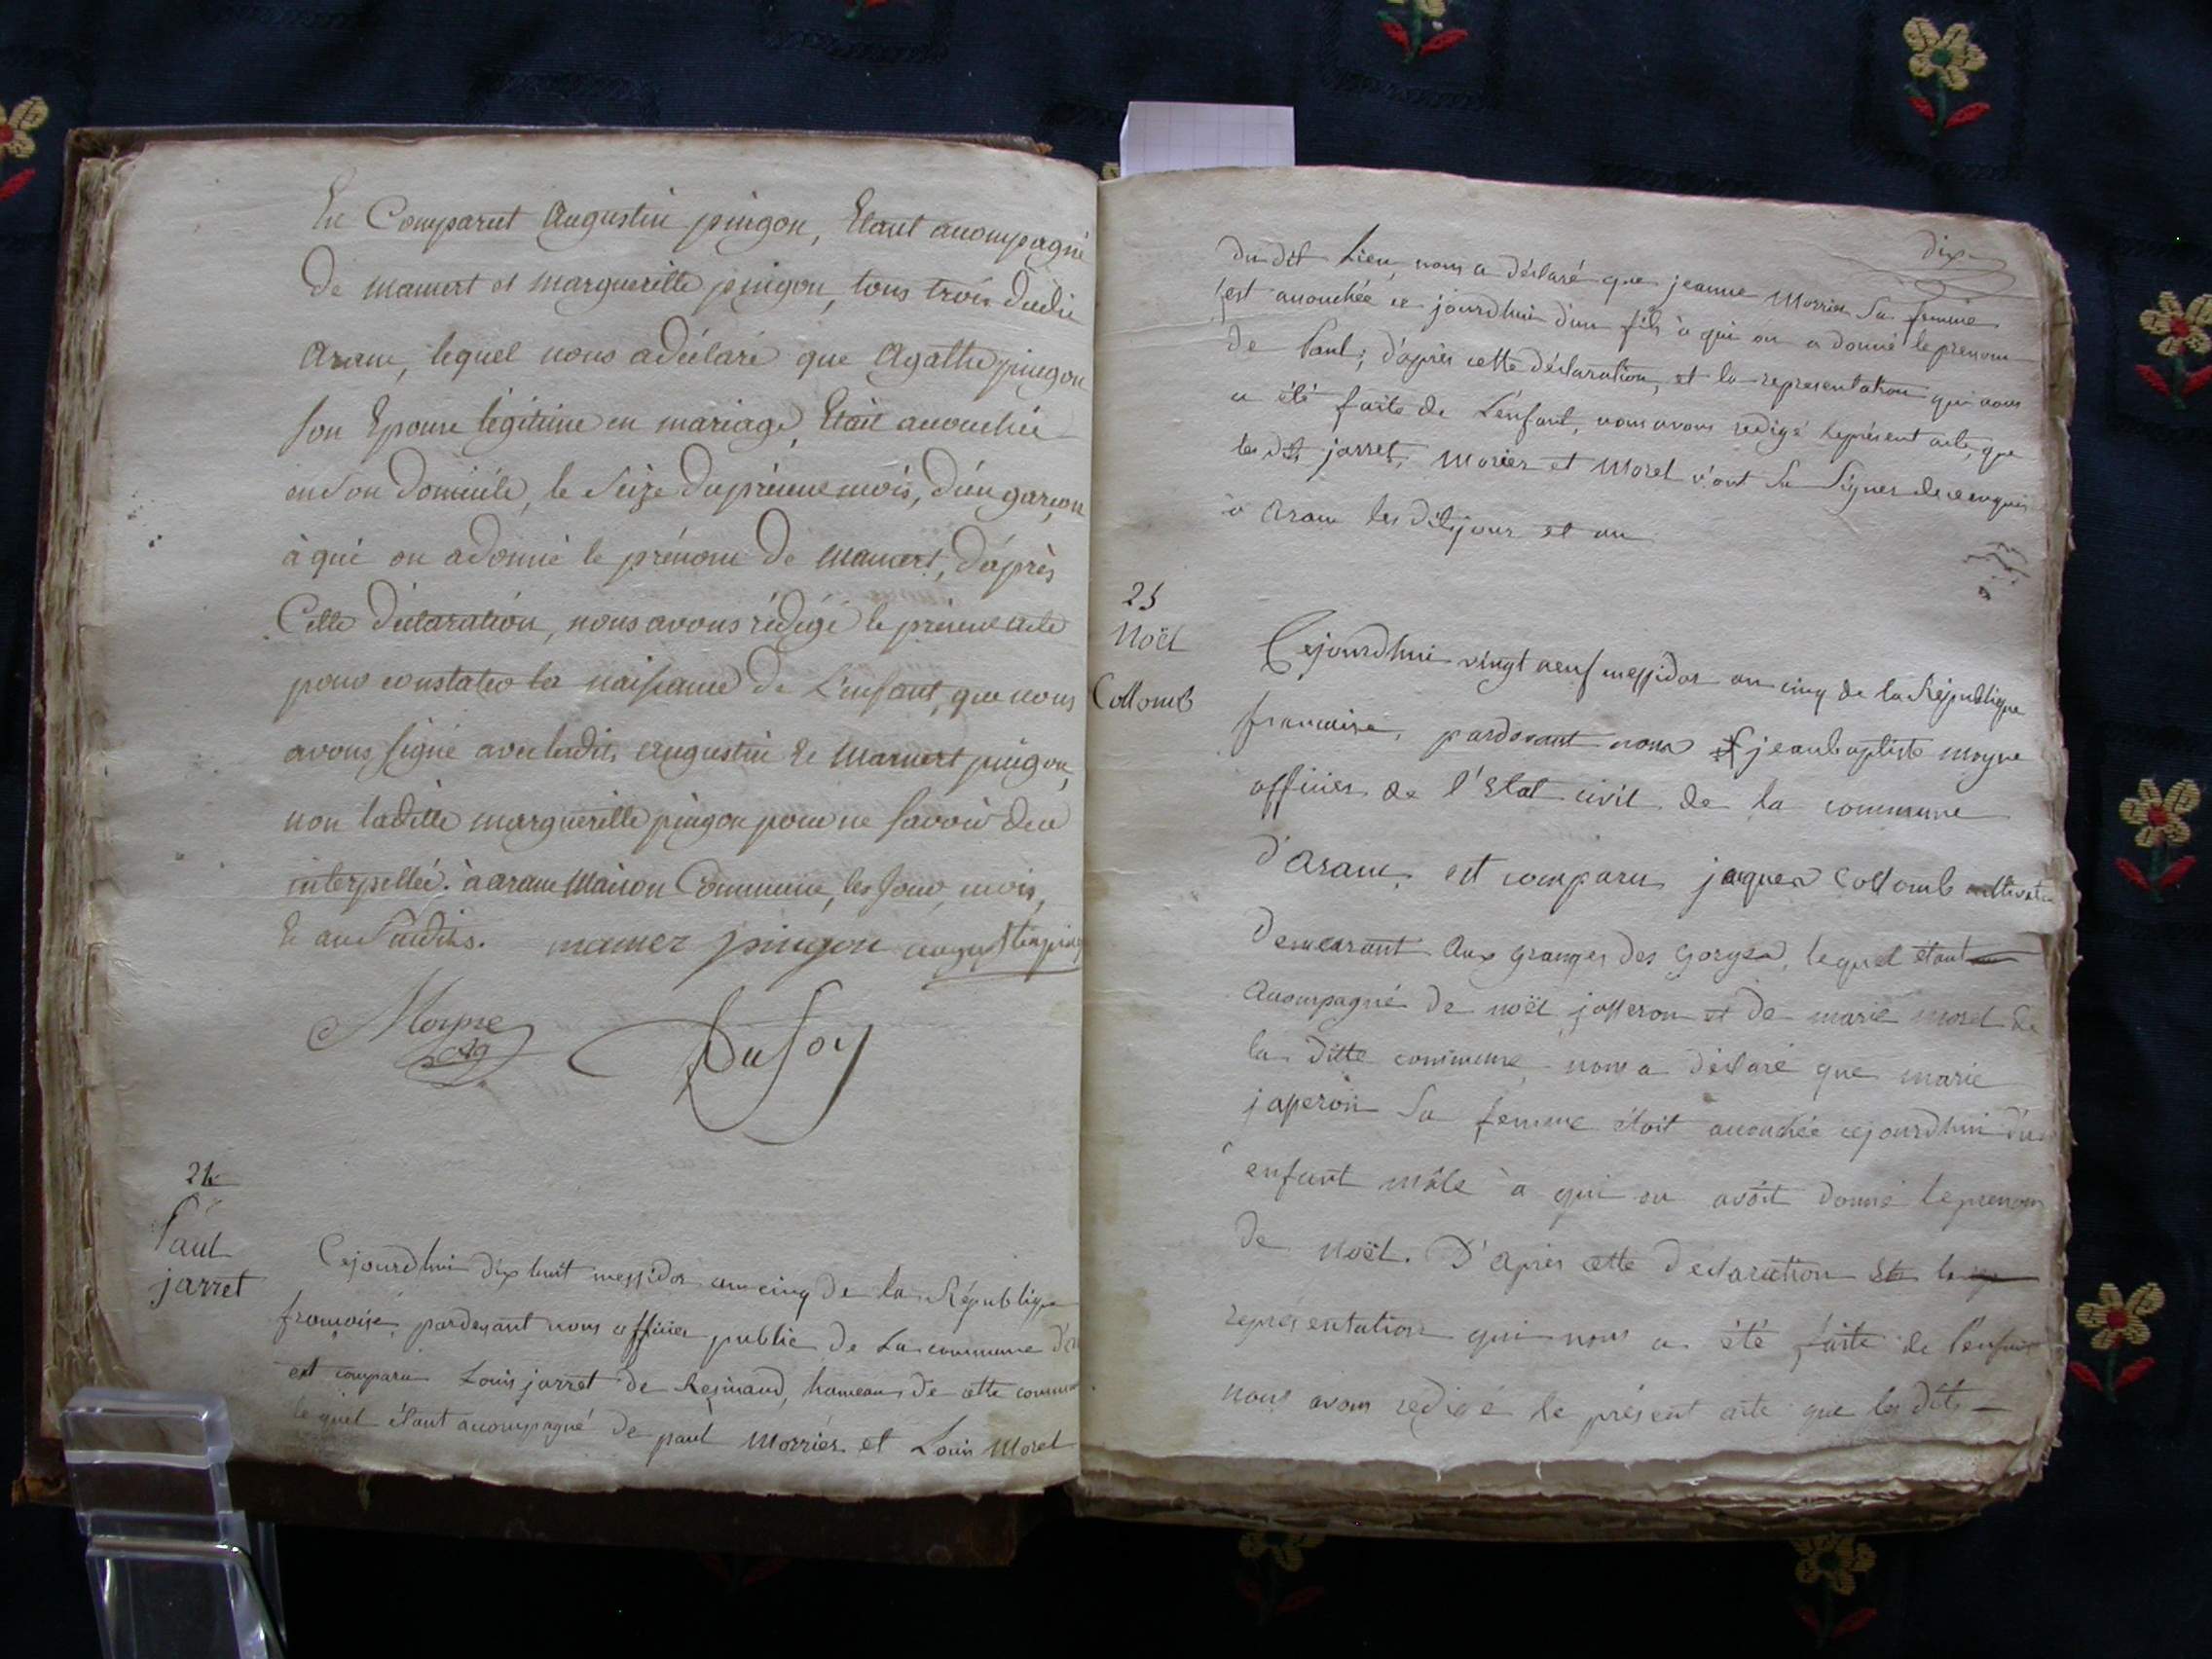 Est Comparut Augustin pingon, Etant acompagné
de mamert et marguerille pingon, tous trois dudit
aranc, lequel nous a déclaré que Agathe pingon
son Epouse légitime en mariage, Etait acouchée
en son domicile, le seize du présent mois, d'un garçon,
à qui on a donné le prénom de mamert, d'après
Cette déclaration, nous avons rédigé le présent acte
pour constater la naissance de L'enfant, que nous
avons signé avec lesdits augustin Et Mamert pingon,
non ladille marguerille pingon pour ne savoir de ce
interpellée. à aranc Maison Commune, les Jour, mois,
Et an susdits. mamer pingon augustin ping
Moyne
Dufoy
24
Paul
jarret
Cejourdhui dix huit messidor an cinq de la République
françoise, pardevant nous officier public de La commune d'
est comparu Louis jarret de Resinand, hameau de cette commune
lequel étant acompagné de paul Morrier et Louis Morel
dix
du dit Lieu, nous a déclaré que jeanne Morrier sa femme
s'est acouchée ce jourdhui d'un fils à qui on a donné le prenom
de Paul; d'après cette déclaration, et la representation qui nous
a été faite de L'enfant, nous avons redigé le présent acte, que
les dits jarret, Morier et Morel n'ont su signer de ce enquis
à Aranc les dits jour et an
25
Noël
Collomb
Cejourdhui vingt neuf messidor an cinq de la République
francaise, pardevant nous jeanbaptiste moyne
officier de l'Etat civil de la commune
d'Aranc, est comparu jaques Collomb cultivateur
demeurant aux granges des Gorges, lequel étant
acompagné de noël josseron et de marie morel de
la ditte commune nous a déclaré que marie
josseron sa femme étoit acouchée cejourdhui d'un
enfant mâle à qui on avoit donné le prenom
de Noël. D'Apres cette declaration Et la
representation qui nous a été faite de l'enfant
nous avons redigé le présent acte que les dits